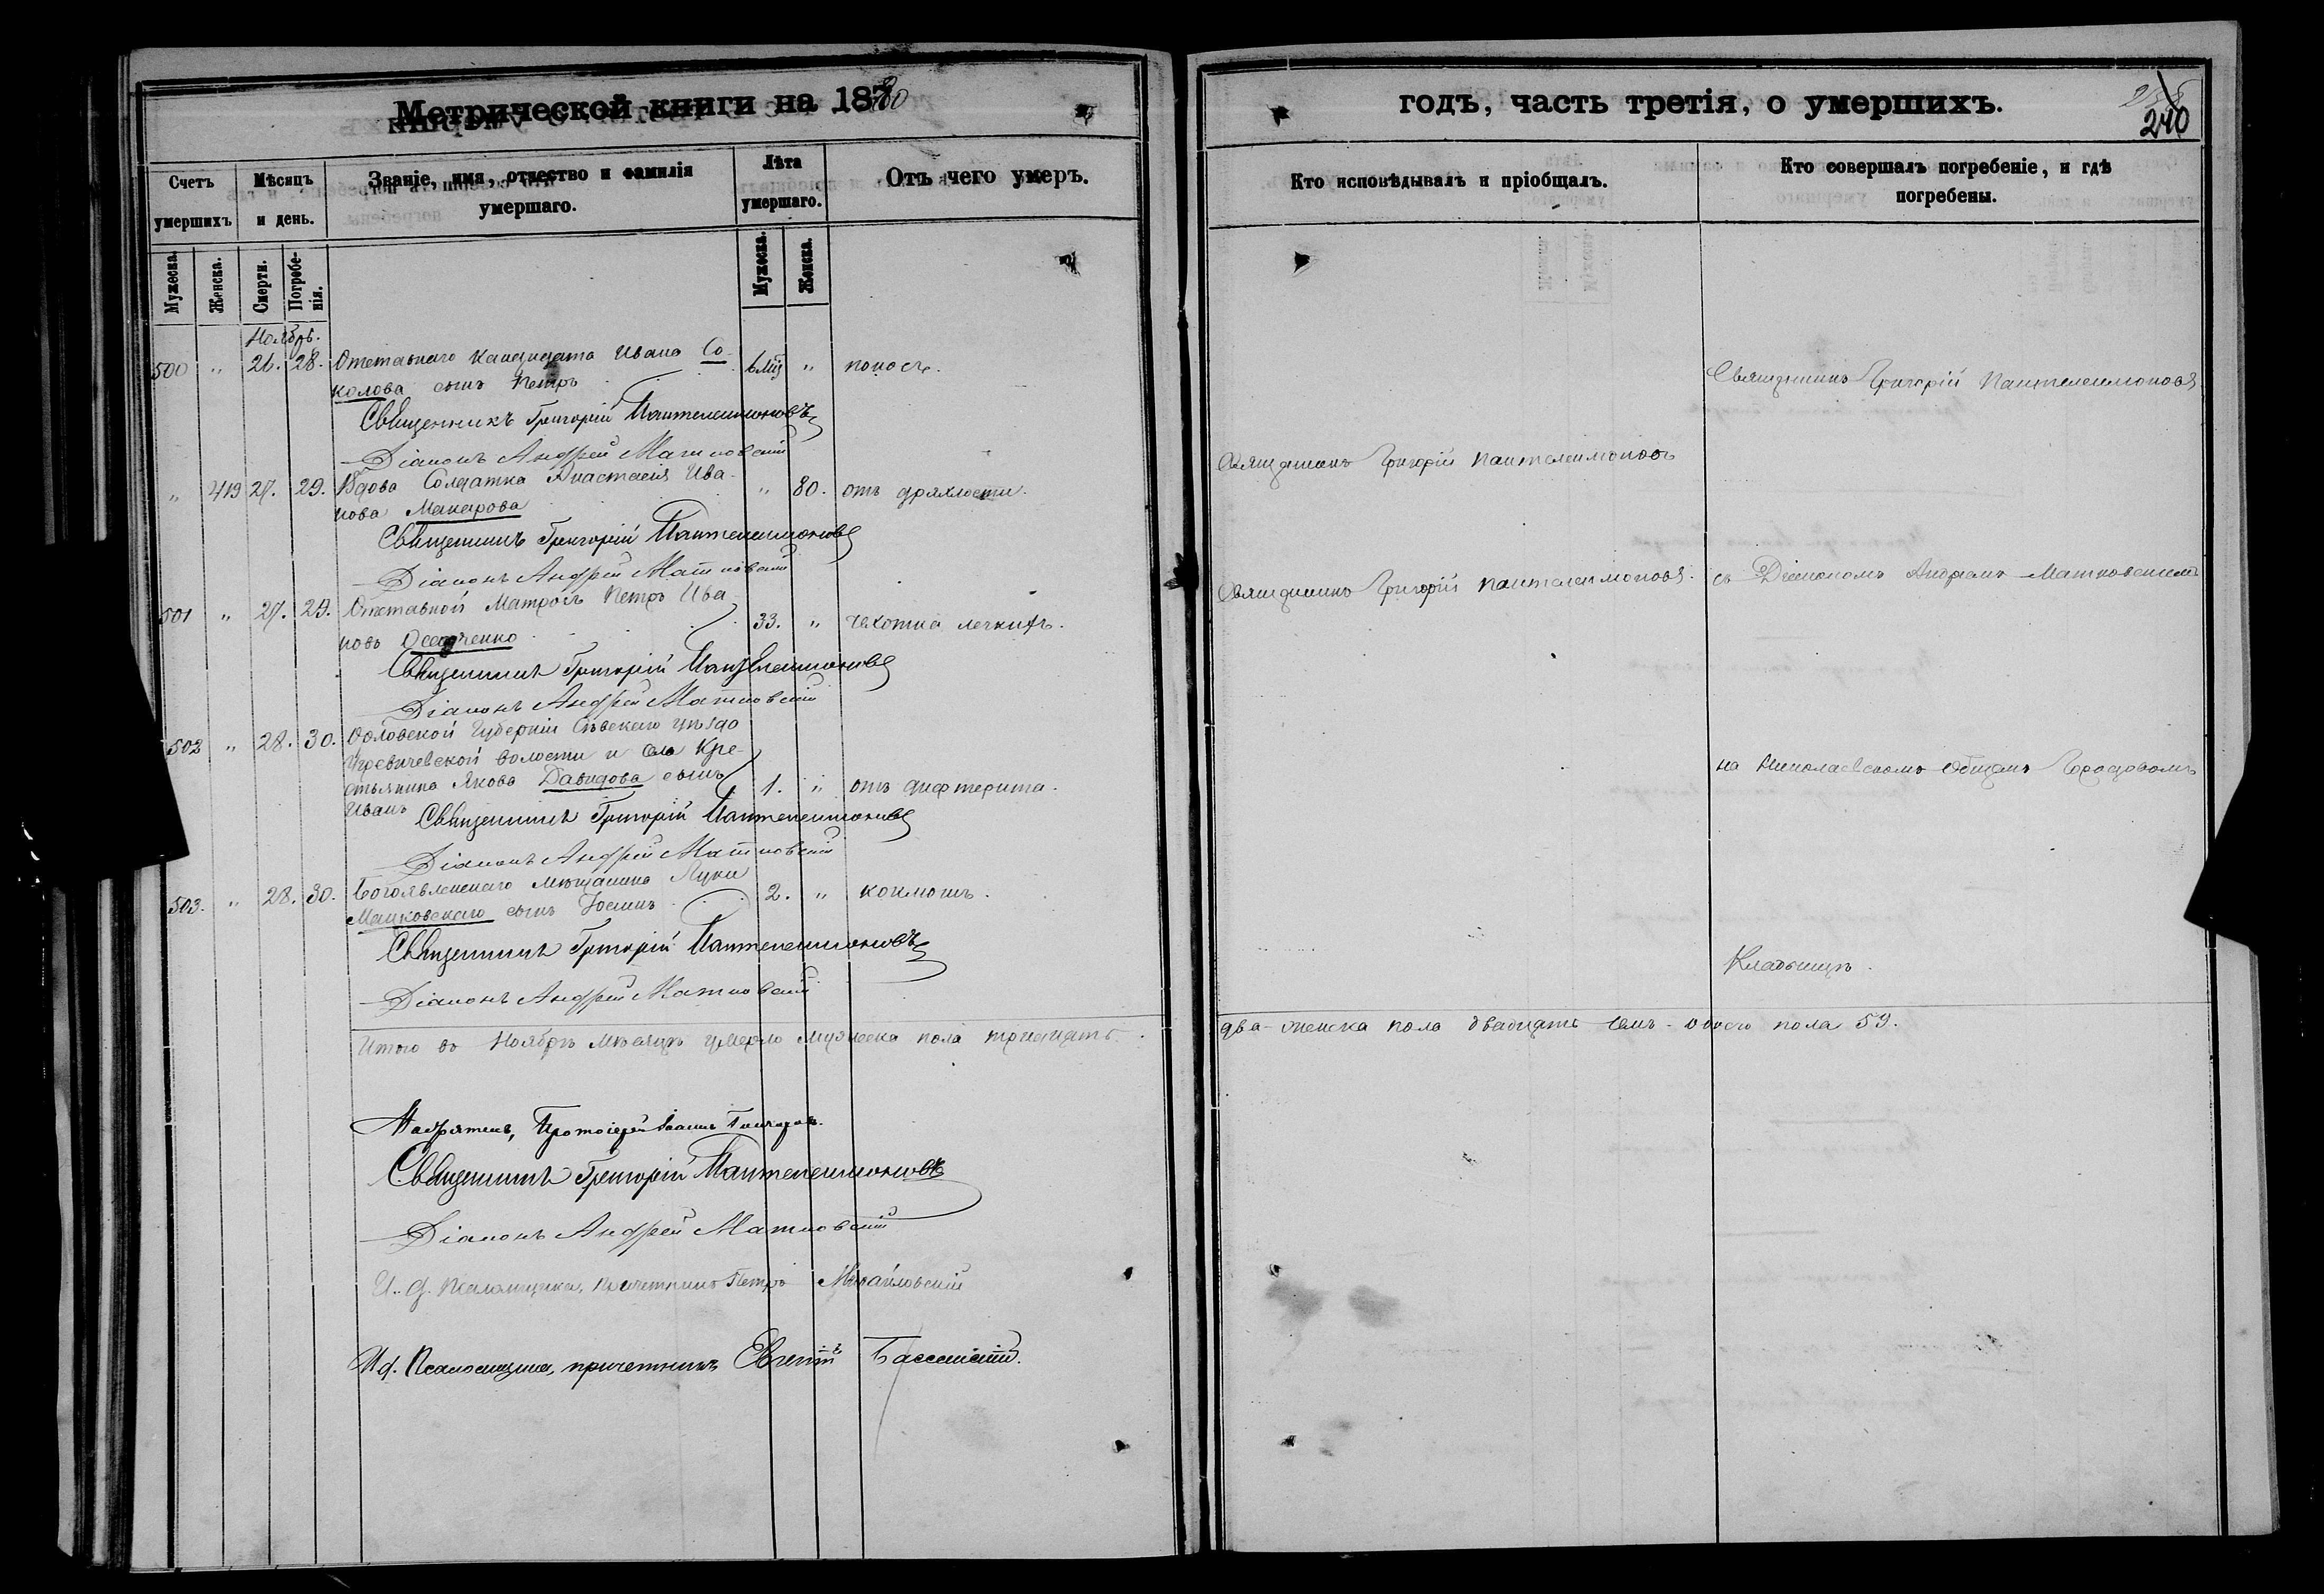 Метрической книги на 1880
годъ, часть третія, о умершихъ.
240
Счетъ умершихъ
Мѣсяцъ и день.
Званіе, имя, отчество и фамилія умершаго.
Лѣта умершаго.
Отъ чего умеръ.
Кто исповѣдывалъ и пріобщалъ.
Кто совершалъ погребеніе, и гдѣ погребены.
Мужеска.
Женска.
Смерти.
Погребенія.
Мужеска.
Женска.
Ноябрь.
500 " 26. 28. Отставнаго Кандидата Ивана Со- 6 " поносъ. Священникъ Григорій Пантелеимоновъ
колова сынъ Петръ
Священникъ Григорій Пантелеимоновъ
Діаконъ Андрей Матковскій
Священникъ Григорій Пантелеимоновъ
" 419 27. 29. Вдова Солдатка Анастасія Ива- " 80. отъ дряхлости.
нова Макарова
Священникъ Григорій Пантелеимоновъ
Діаконъ Андрей Матковскій
Священникъ Григорій Пантелеимоновъ. съ Діакономъ Андреемъ Матковскимъ
501 " 27. 29. Отставной Матросъ Петръ Ива- 33. " чахотка легкихъ.
новъ
Священникъ Григорій Пантелеимоновъ
Діаконъ Андрей Матковскій
502 " 28. 30. Орловской Губерніи Сѣвскаго уѣзда
волости и села Кре-
стьянина Якова Давидова сынъ 1. " отъ дифтерита. на Николаевскомъ общемъ Городовомъ
Иванъ
Священникъ Григорій Пантелеимоновъ
Діаконъ Андрей Матковскій
503. " 28. 30. Богоявленскаго мѣщанина Луки 2. " коклюшъ.
сынъ Іосифъ
Священникъ Григорій Пантелеимоновъ
Кладбищѣ.
Діаконъ Андрей Матковскій
Итого въ Ноябрѣ мѣсяцѣ умерло мужеска пола тридцать два - женска пола двадцать семь - обоего пола 59.
Протоіерей Іоаннъ
Священникъ Григорій Пантелеимоновъ
Діаконъ Андрей Матковскій
И. д. Псаломщика, причетникъ Петръ Михайловскій
И д. Псаломщика, причетникъ Евгеній